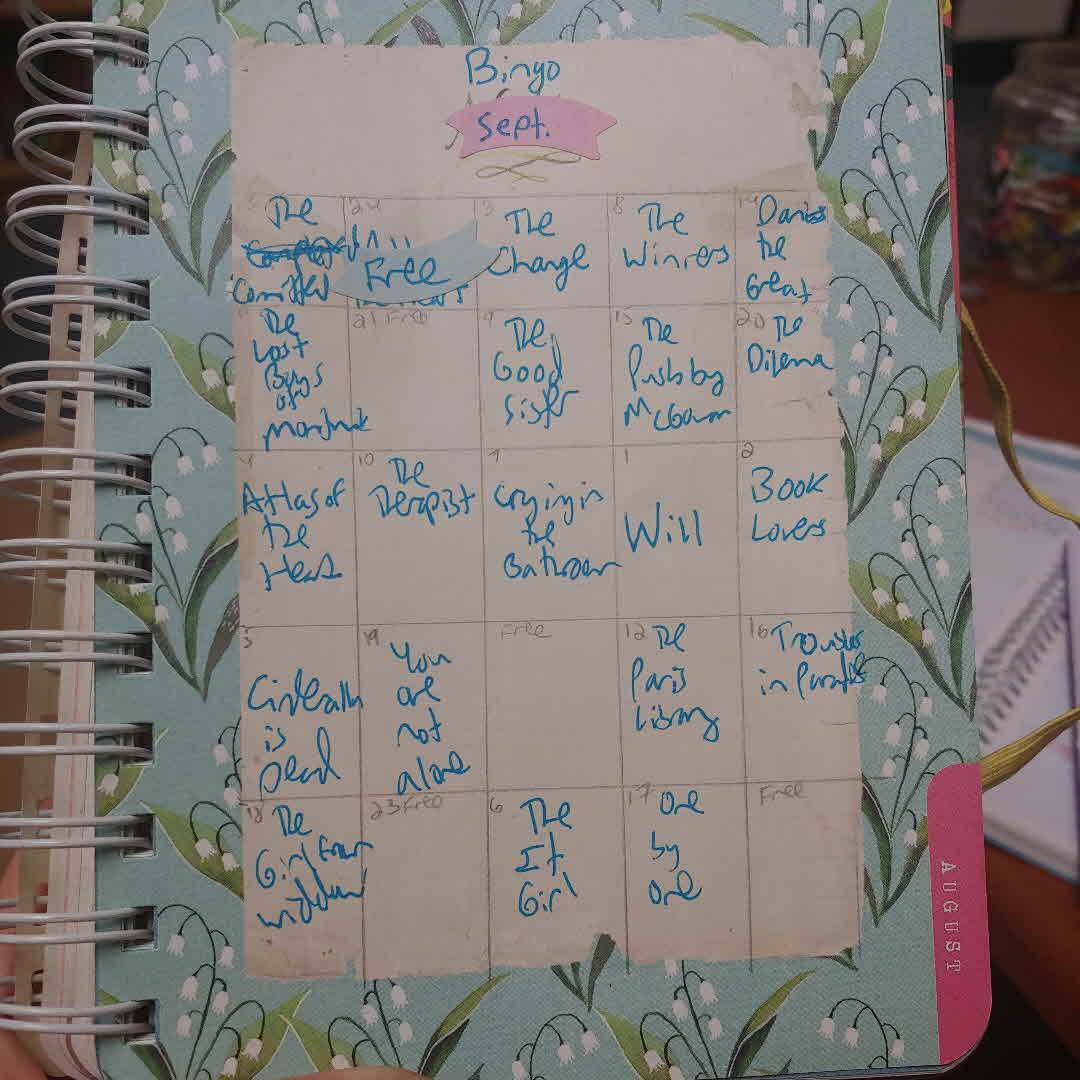 Bingo
Sept.
The
Comitted
24
Free
3
The
Change
8
The
Winners
14
Darius
the
Great
The
Lost
Boys
of
21 Free
9
The
Good
Sister
13
The
Push by
McGowan
20
The
Dilema
4
Atlas of
the
Heart
10
The
Therapist
7
Crying in
the
Bathroom
1
Will
2
Book
Lovers
5
Cinderalla
is
Dead
19
You
are
not
alone
Free
12
The
Paris
Library
16
Troubles
in Paradise
18
The
Girl from
widow
23 Free
6
The
It
Girl
17
One
by
one
Free
AUGUST